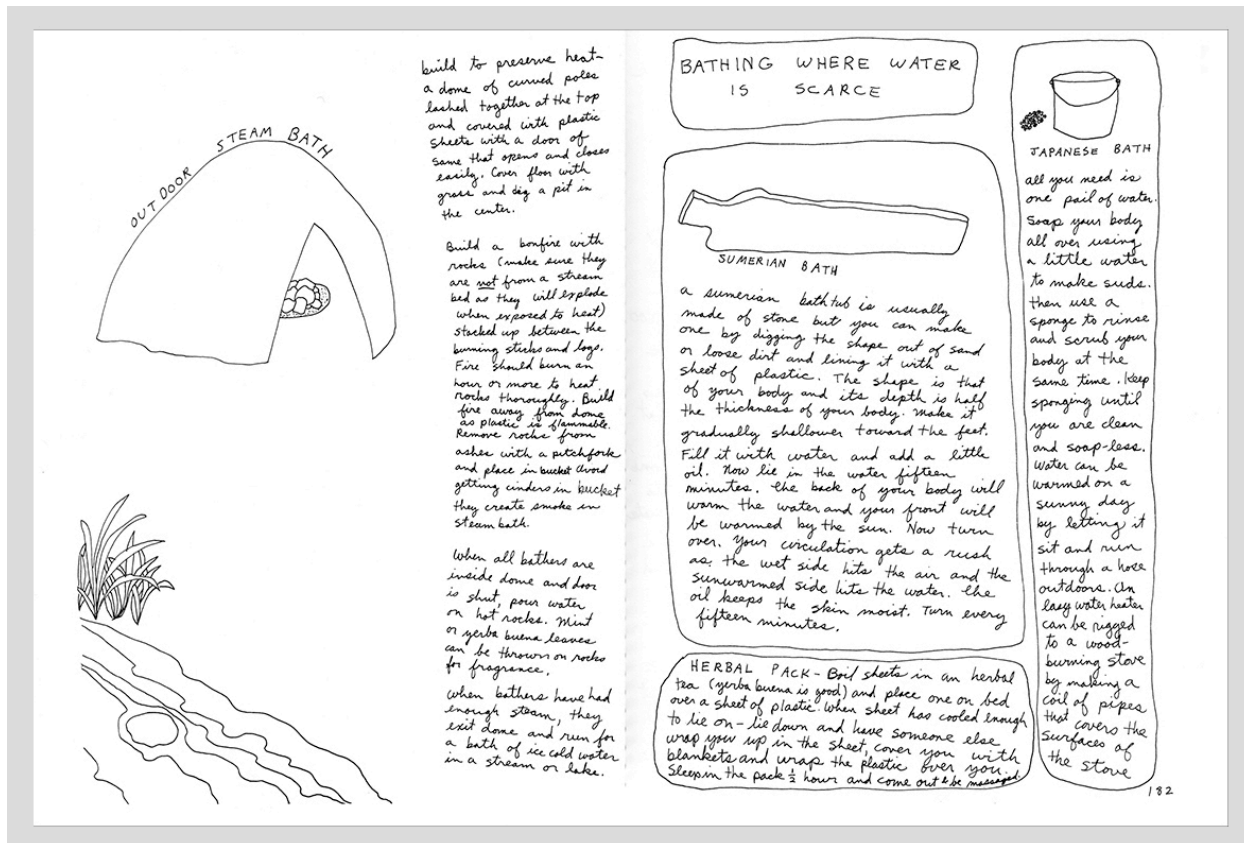 OUTDOOR STEAM BATH
build to preserve heat-
a dome of curved poles
lashed together at the top
and covered with plastic
sheets with a door of
same that opens and closes
easily. Cover floor with
grass and dig a pit in
the center.
Build a bonfire with
rocks (make sure they
are not from a stream
bed as they will explode
when exposed to heat)
stacked up between the
burning sticks and logs.
Fire should burn an
hour or more to heat
rocks thoroughly. Build
fire away from dome
as plastic is flammable.
Remove rocks from
ashes with a pitchfork
and place in bucket avoid
getting cinders in bucket
they create smoke in
steam bath.
When all bathers are
inside dome and door
is shut, pour water
on hot rocks. Mint
or yerba buena leaves
can be thrown on rocks
for fragrance.
When bathers have had
enough steam, they
exit dome and run for
a bath of ice cold water
in a stream or lake.
BATHING WHERE WATER
IS SCARCE
SUMERIAN BATH
a sumerian bathtub is usually
made of stone but you can make
one by digging the shape out of sand
or loose dirt and lining it with a
sheet of plastic. The shape is that
of your body and its depth is half
the thickness of your body. Make it
gradually shallower toward the feet.
Fill it with water and add a little
oil. Now lie in the water fifteen
minutes. The back of your body will
warm the water and your front will
be warmed by the sun. Now turn
over. Your circulation gets a rush
as the wet side hits the air and the
sunwarmed side hits the water. The
oil keeps the skin moist. Turn every
fifteen minutes.
HERBAL PACK - Boil sheets in an herbal
tea (yerba buena is good) and place one on bed
over a sheet of plastic. When sheet has cooled enough
to lie on - lie down and have someone else
wrap you up in the sheet, cover you with
blankets and wrap the plastic over you.
Sleep in the pack ½ hour and come out & be massaged.
JAPANESE BATH
all you need is
one pail of water.
Soap your body
all over using
a little water
to make suds.
then use a
sponge to rinse
and scrub your
body at the
same time. Keep
sponging until
you are clean
and soap-less.
Water can be
warmed on a
sunny day
by letting it
sit and run
through a hose
outdoors. An
easy water heater
can be rigged
to a wood-
burning stove
by making a
coil of pipes
that covers the
surfaces of
the stove
182